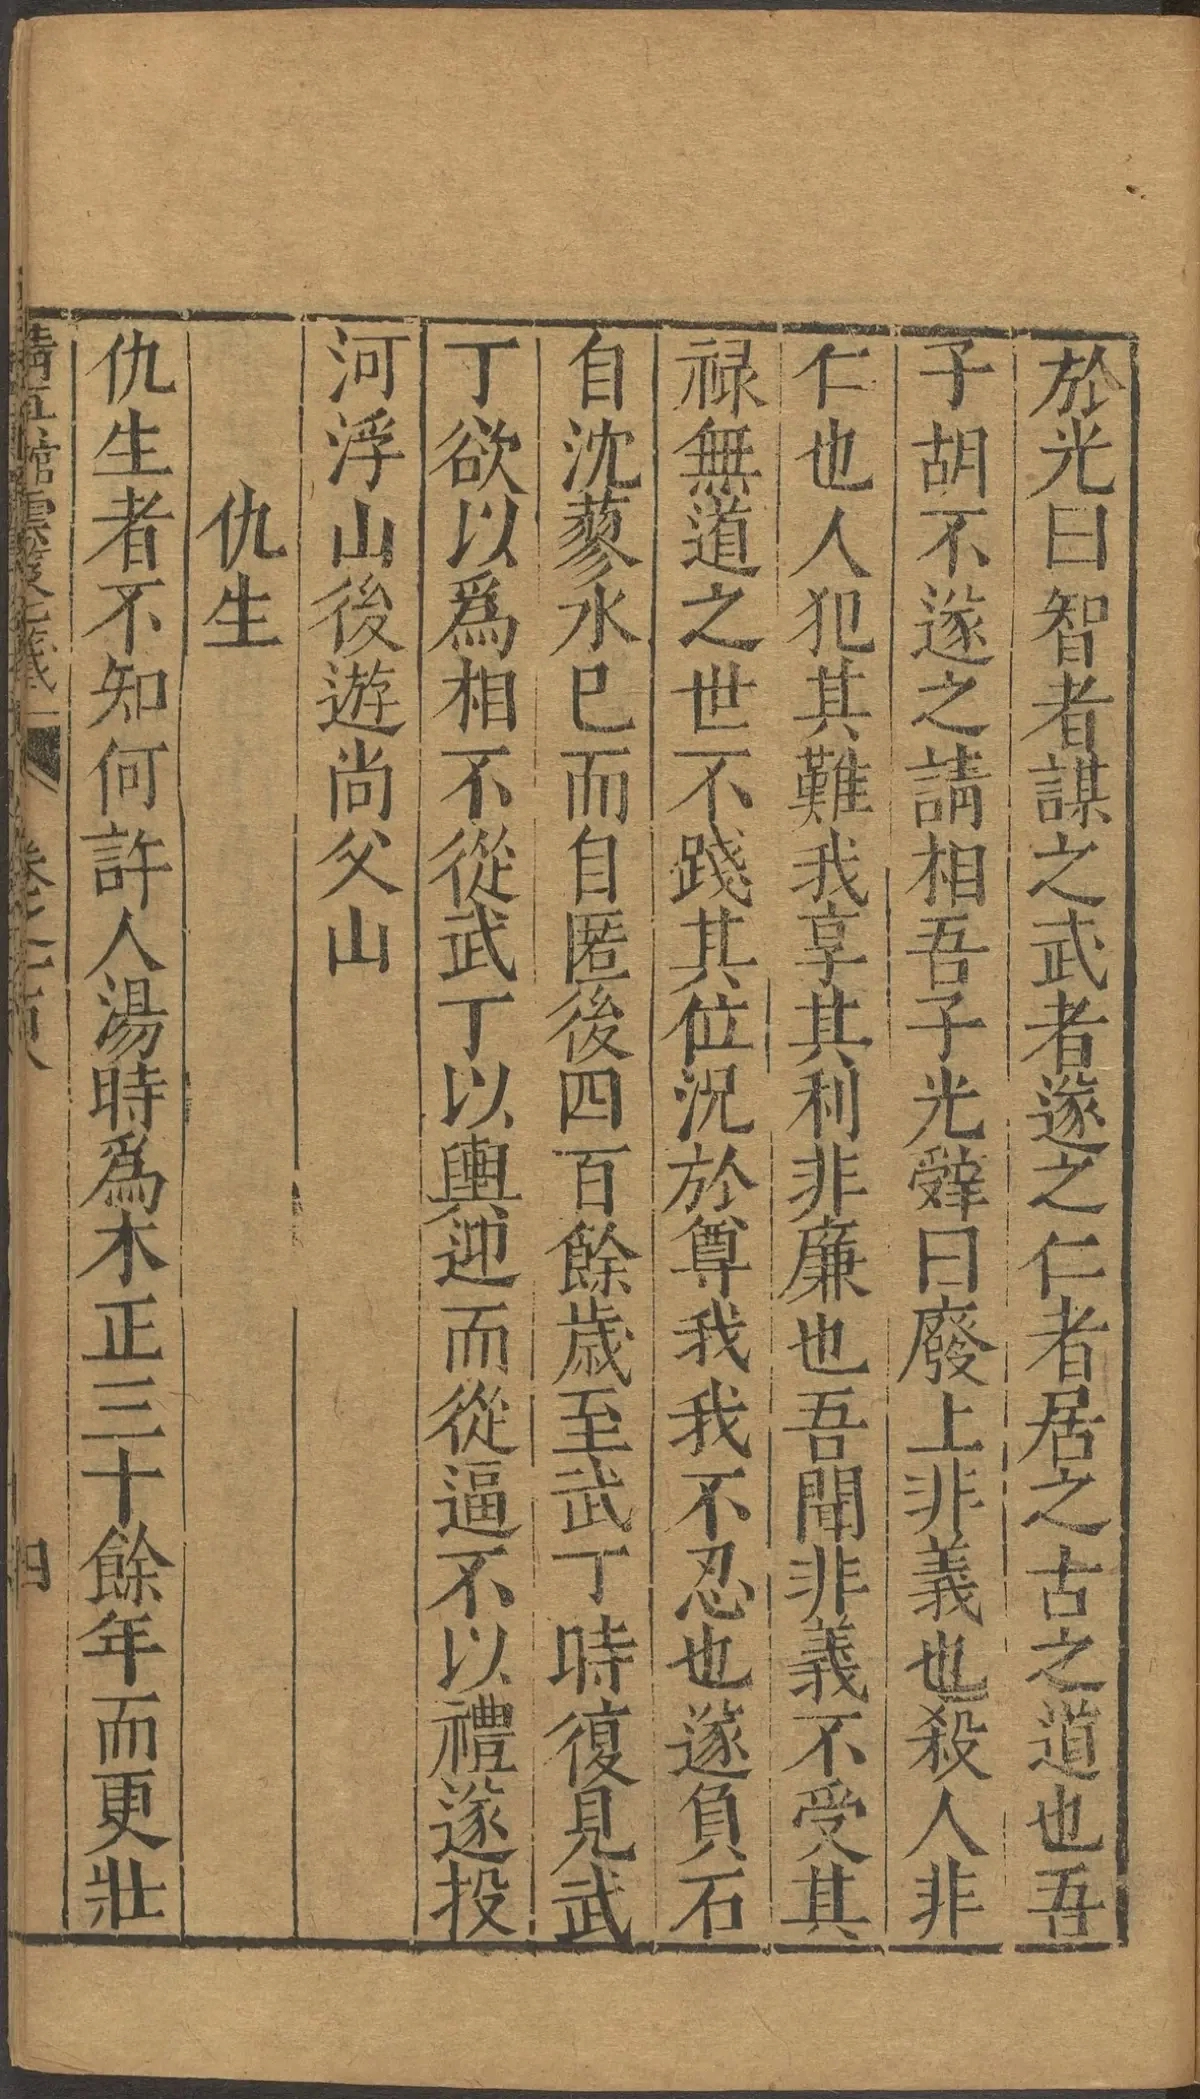 於光曰智者謀之武者遂之仁者居之古之道也吾
子胡不遂之請相吾子光辤曰廢上非義也殺人非
仁也人犯其難我享其利非廉也吾聞非義不受其
祿無道之世不踐其位況於尊我我不忍也遂負石
自沈蓼水已而自匿後四百餘歲至武丁時復見武
丁欲以爲相不從武丁以輿迎而從逼不以禮遂投
河浮山後遊尚父山
仇生
仇生者不知何許人湯時爲木正三十餘年而更壯
清真館雲笈七籤
卷之一百八
四